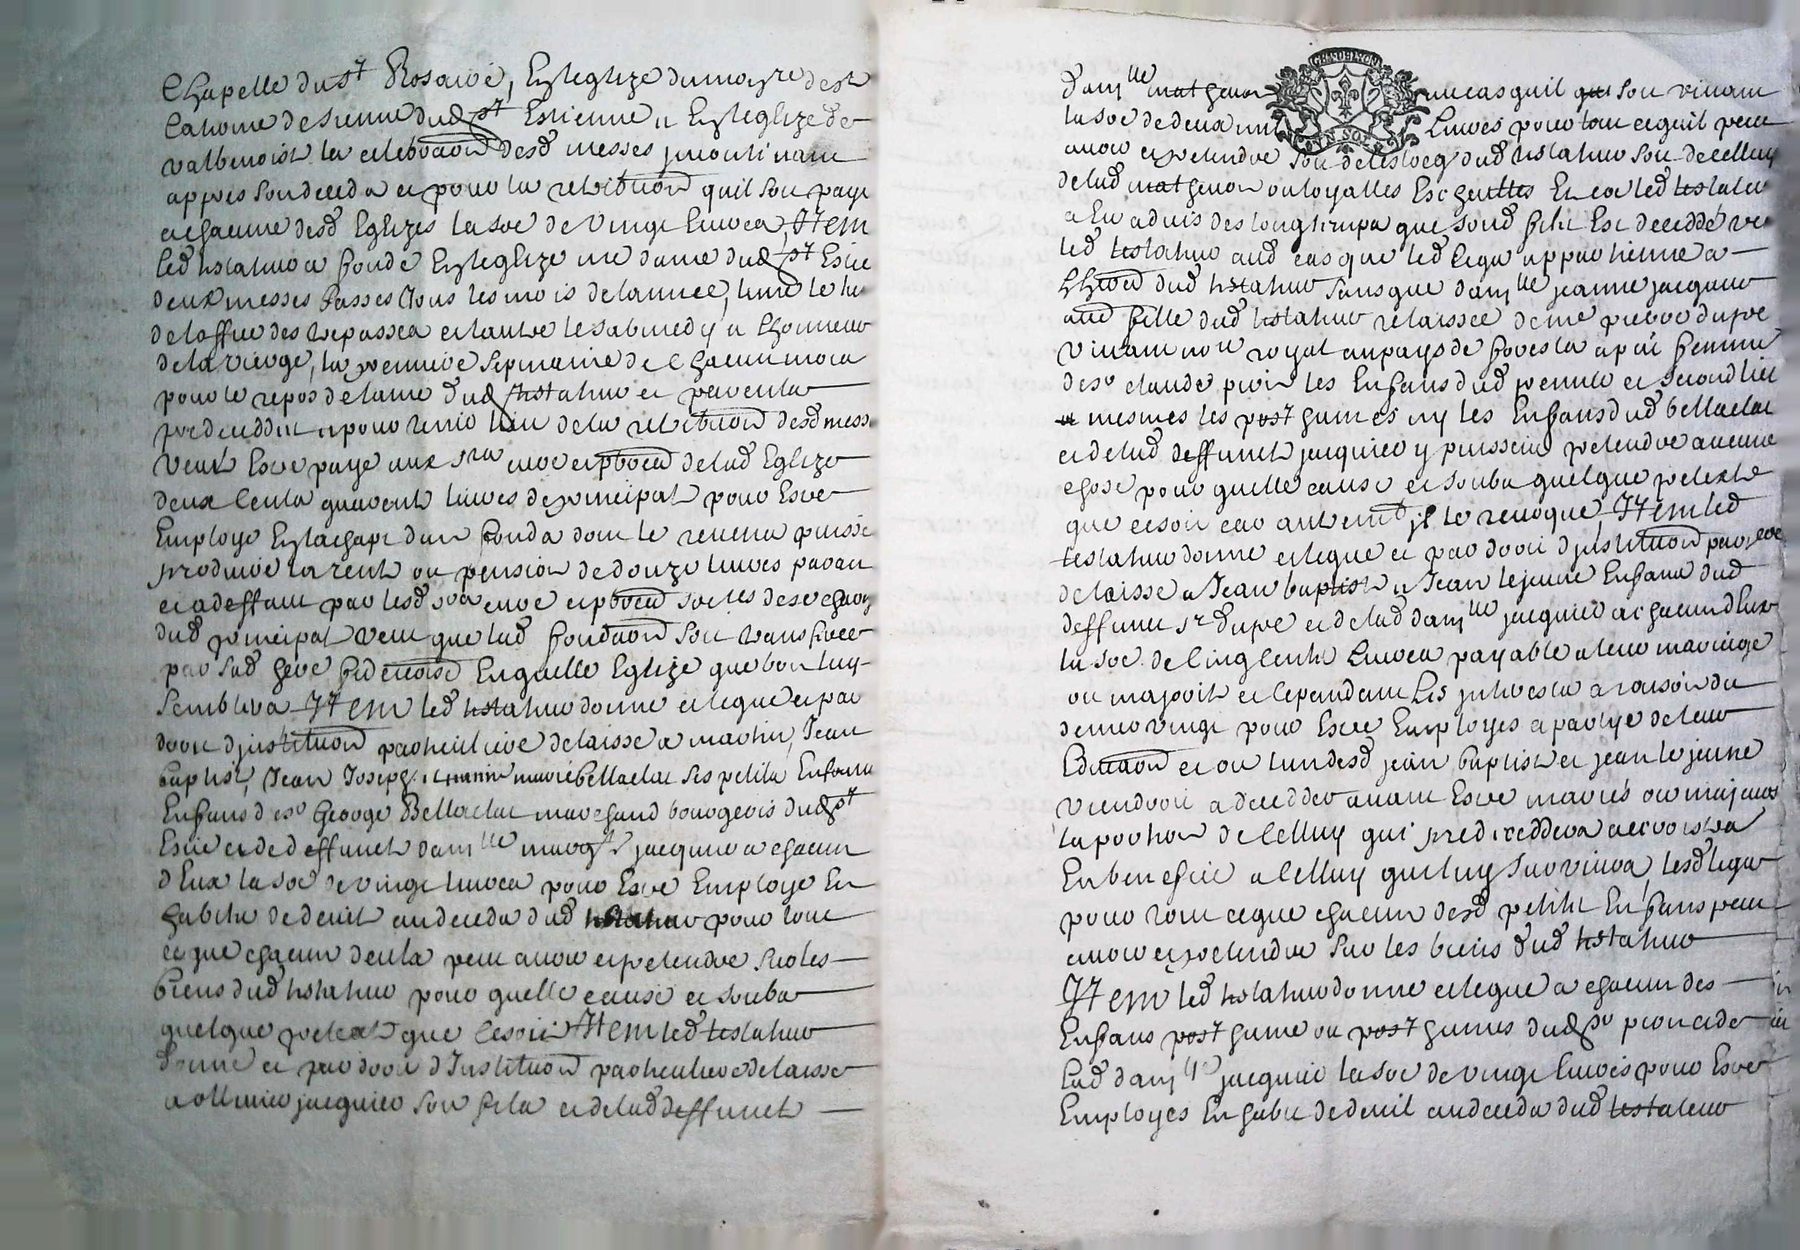 Chapelle du st Rosaire, En leglize du moyre dest
Catherine de sienne dud st Estienne et En leglize de
valbenoist la celebration desd messes Incontinant
appres son decedz et pour la retribution quil soit paye
a chacune desd Eglizes la soe de vingt livres, Item
led testateur a fondé En leglize nre dame dud st Estie
deux messes basses tous les mois de lannee, lune le lu
de loffice des trepasses et lautre le sabmedy a lhonneur
de la vierge, la premiere sepmaine de chacun mois
pour le repos de lame dud testateur et parents
predeceddes et pour tenir lieu de la retribution desd mess
veut Estre payé aux srs curé et pbres de lad Eglize
deux Cents quarente livres de principal pour Estre
Employe En lachapt dun fonds dont le revenu puisse
produire la rente ou pension de douze livres par an
et a deffaut par lesd srs curé et pbres de se charg
dud principal veut que lad fondation soit transferée
par sad here En quelle Eglize que bon luy
semblera Item led testateur donne et legue et par
droit dinstitution particuliere delaisse a Jean
baptiste, Jean Joseph et marie bellaclat ses petits Enfans
Enfans de sr George Bellaclat marchand bourgeois dud st
Estie et de deffuncte damlle margte jacquier a chacun
dEux la soe de vingt livres pour Estre Employe En
habits de deuil au decedz dud testateur pour tout
ce que chacun deux peut avoir et pretendre sur les
biens dud testateur pour quelle cause et soubs
quelque pretexte que ce soit Item led testateur
donne et par droit dInstitution particuliere delaisse
a jacquier son fils et de lad deffuncte
damlle mathevon au cas quil soit vivant
la soe de deux mil livres pour tout ce quil peut
avoir et pretendre soit de lestocq dud testateur soit de celluy
de lad mathevon ou loyalles Escheuttes Et car led testateur
a Eu advis des longtemps que sond fils Est deceddé veut
led testateur aud cas que led legat appartienne a
lhere dud testateur sans que damlle jeanne jacquier
fille dud testateur relaissée de me pierre dupré
vivant nore royal au pays de forests a pnt femme
de sr claude les Enfans dud premier et second lict
mesmes les posthumes ny les Enfans dud bellaclat
et de lad deffuncte jacquier y puissent pretendre aucune
chose pour quelle cause et soubs quelque pretexte
que ce soit car autrement il le revoque Item led
testateur donne et legue et par droit dinstitution
delaisse a Jean baptiste et Jean le jeune Enfans dud
deffunct sr dupré et de lad damlle jacquier a chacun dEux
la soe de Cinq Cents livres payable a leur mariage
ou majorité et Cependant les interests a raison du
denier vingt pour Estre Employes a partye de leur
Education et ou lun desd jean baptiste et jean le jeune
viendroit a decedder avant Estre mariés ou majeurs
la portion de Celluy qui predeceddera accroistra
En benefice a Celluy qui luy survivra, lesd legats
pour tout ce que chacun desd petits Enfans peut
avoir et pretendre sur les biens dud testateur
Item led testateur donne et legue a chacun des
Enfans posthume ou posthumes dud sr et de
lad damlle jacquier la soe de vingt livres pour Estre
Employes En habit de deuil au decedz dud testateur